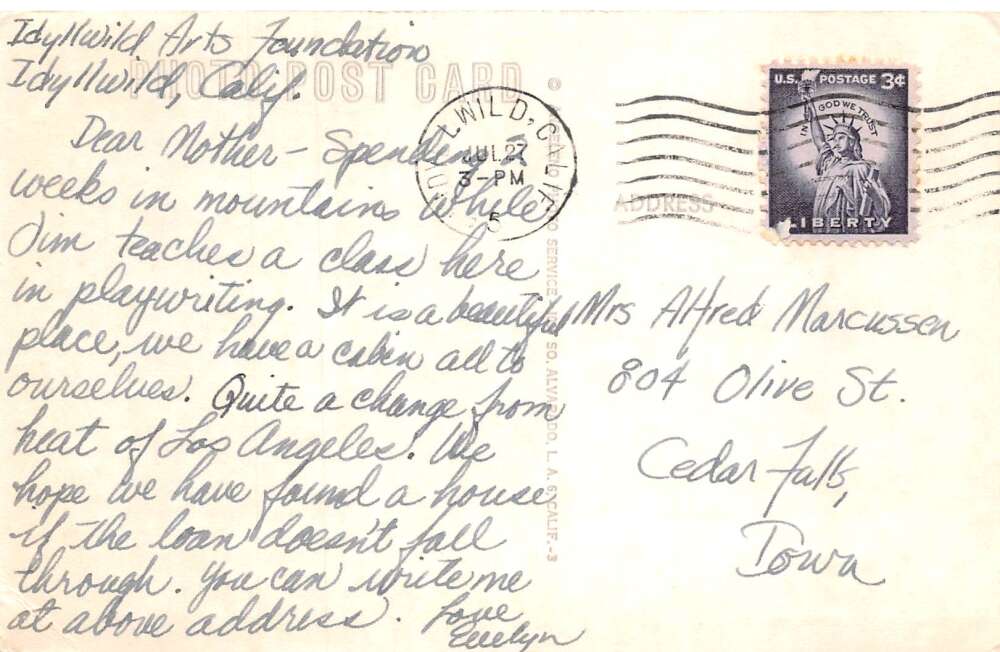 Idyllwild Arts Foundation
Idyllwild, Calif.
PHOTO POST CARD
Dear Mother - Spending 2
weeks in mountains while
Jim teaches a class here
in playwriting. It is a beautiful
place, we have a cabin all to
ourselves. Quite a change from
heat of Los Angeles. We
hope we have found a house
if the loan doesn't fall
through. You can write me
at above address. Love
Evelyn
IDYLLWILD, CALIF.
JUL 27
3-PM
5
SERVICE
SO. ALVARADO, L. A. 6, CALIF.-3
U.S. POSTAGE 3¢
IN GOD WE TRUST
LIBERTY
ADDRESS
Mrs Alfred Marcussen
804 Olive St.
Cedar Falls,
Iowa